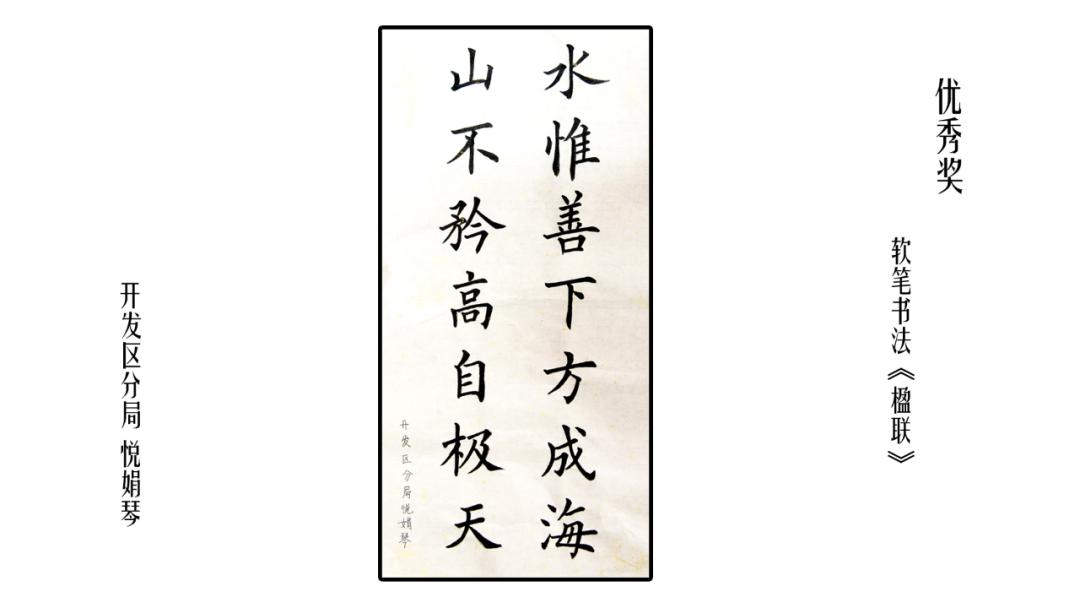 优秀奖
软笔书法《楹联》
水惟善下方成海
山不矜高自极天
开发区分局悦娟琴
开发区分局 悦娟琴